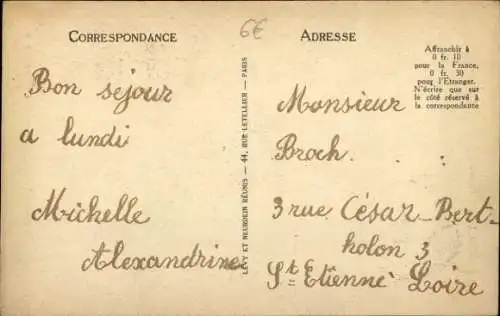 CORRESPONDANCE
6€
ADRESSE
Affranchir à
0 fr. 10
pour la France,
0 fr. 30
pour l'Etranger.
N'écrire que sur
le côté réservé à
la correspondante
Bon sejour
a lundi
Michelle
Alexandrine
LÉVY ET NEURDEIN RÉUNIS — 44, RUE LETELLIER — PARIS
Monsieur
Broch.
3 rue César-Bert-
holon 3
St Etienne Loire